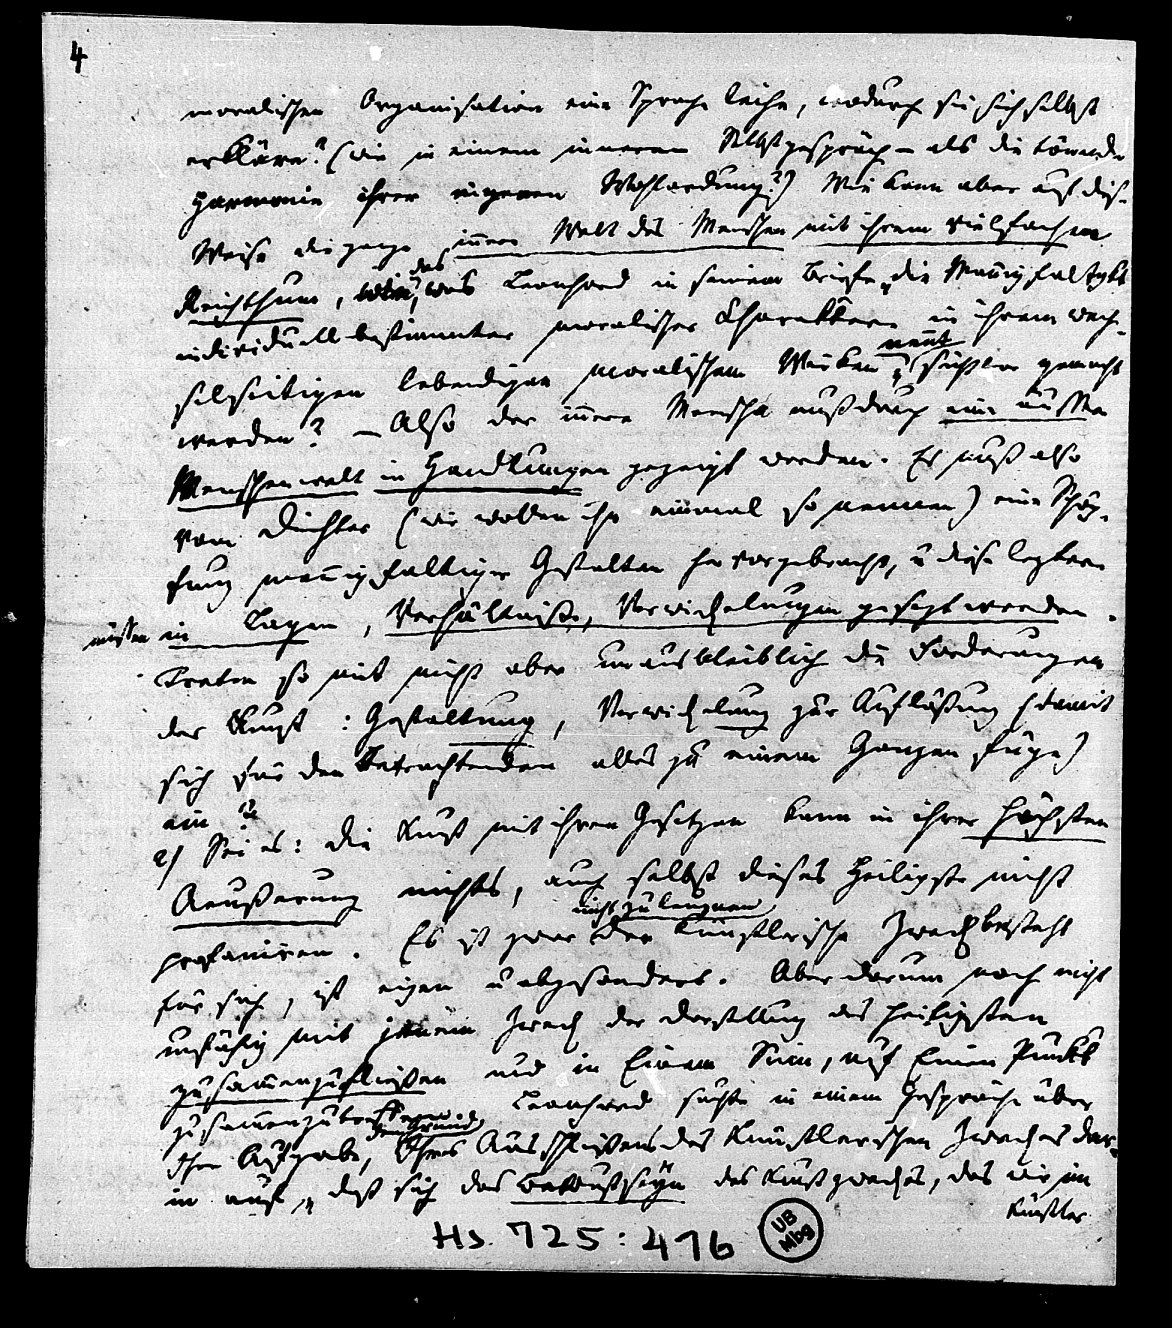 4
moralischen Organisation eine Sprache leihe, wodurch sie sich selbst
erkläre? (wie in einem inneren Selbstgespräch – als die tönende
Harmonie ihrer eigenen Wohlordnung?) Wie kann aber auf diese
Weise die ganze innere Welt des Menschen mit ihrem vielfachen
Reichthum, das, was Leonhard in seinem Briefe „die Mannigfaltigkt
individuell bestimmter moralischer Charaktere in ihrem wech-
selseitigen lebendigen moralischen Wirken“ nennt, sichtbar gemacht
werden? – Also der innere Mensch muß durch eine äussere
Menschenwelt in Handlungen gezeigt werden. Es muß also
vom Dichter (wir wollen ihn einmal so nennen) eine Schöp-
fung mannigfaltiger Gestalten hervorgebracht, u diese letztern
müssen in Lagen, Verhältniße, Verwickelungen gesezt werden.
Treten so mit nicht aber unausbleiblich die Forderungen
der Kunst: Gestaltung, Verwickelung zur Auflösung (damit
sich für den Betrachtenden alles zu einem Ganzen füge)
ein?
2) Sei es: die Kunst mit ihren Gesetzen kann in ihrer höchsten
Aeußerung nichts, auch selbst dieses Heiligste nicht
profaniren. Es ist zwar nicht zu leugnen der Künstlerische Zweck besteht
für sich, ist eigen u abgesondert. Aber darum noch nicht
unfähig mit jenem Zweck der Darstellung des Heiligsten
zusammenzufließen und in Einem Sinn, auf Einem Punkte
zusammenzutreffen. Leonhard suchte in einem Gespräche über
Ihre Aufgabe, den Grund Ihres Ausschließens des Künstlerischen Zweckes dar-
in auf, „daß sich das Bewußtseyn des Kunstzweckes, das wir im
Künstler
Hs. 725:476
UB Mbg